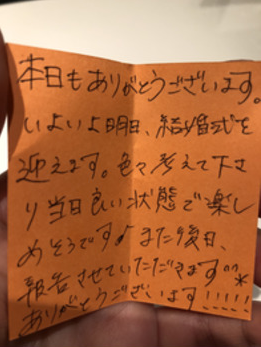 本日もありがとうございます。
いよいよ明日、結婚式を
迎えます。色々考えて下さ
り当日良い状態で楽し
めそうです♪また後日、
報告させていただきます^^*
ありがとうございます!!!!!